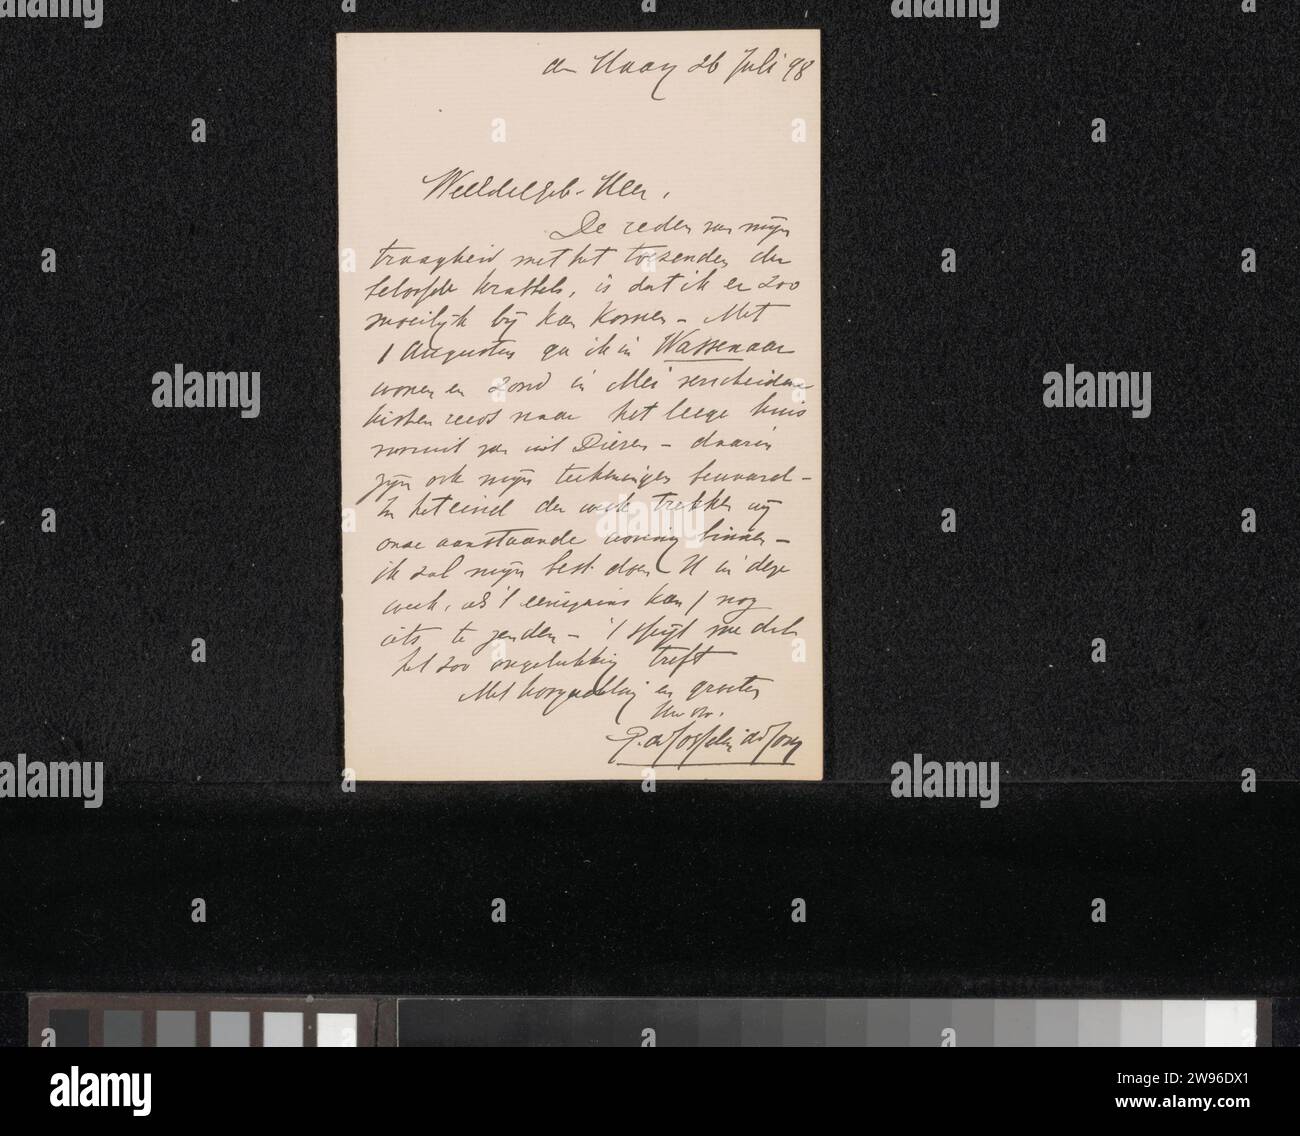 den Haag 26 Juli 98
WelEdelgeb. Heer,
De reden van mijn
traagheid met het toezenden der
beloofde krabbels, is dat ik er zoo
moeilijk bij kan komen - Met
1 Augustus ga ik in Wassenaar
wonen en zond in Mei verscheidene
kisten reeds naar het leege huis
vooruit van uit Dieren - daarin
zijn ook mijn teekeningen bewaard -
In het eind der week trekken wij
onze aanstaande woning binnen -
ik zal mijn best doen U in deze
week, als 't eenigzins kan, nog
iets te zenden - 't spijt me dat
het zoo ongelukkig treft
Met hoogachting en groeten
Uw dv.
P. de Josselin de Jong
alamy
Image ID: 2W96DX1
www.alamy.com